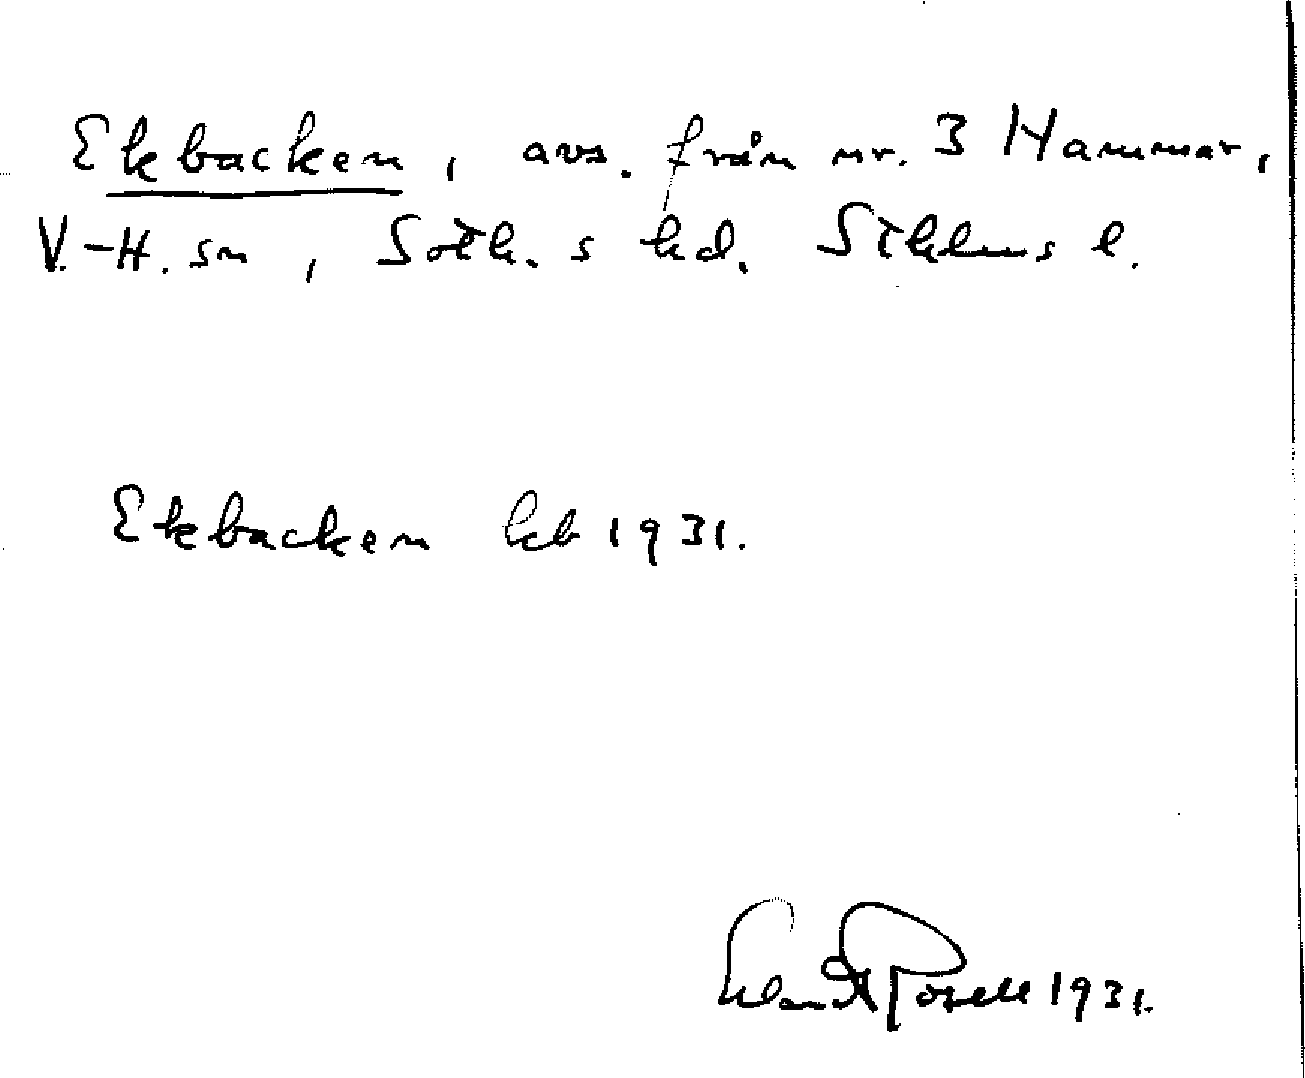 Ekbacken, avs. från nr. 3 Hammar,
V.-H. sn, Soth. s hd. Sthlms l.
Ekbacken kb 1931.
Rosell 1931.